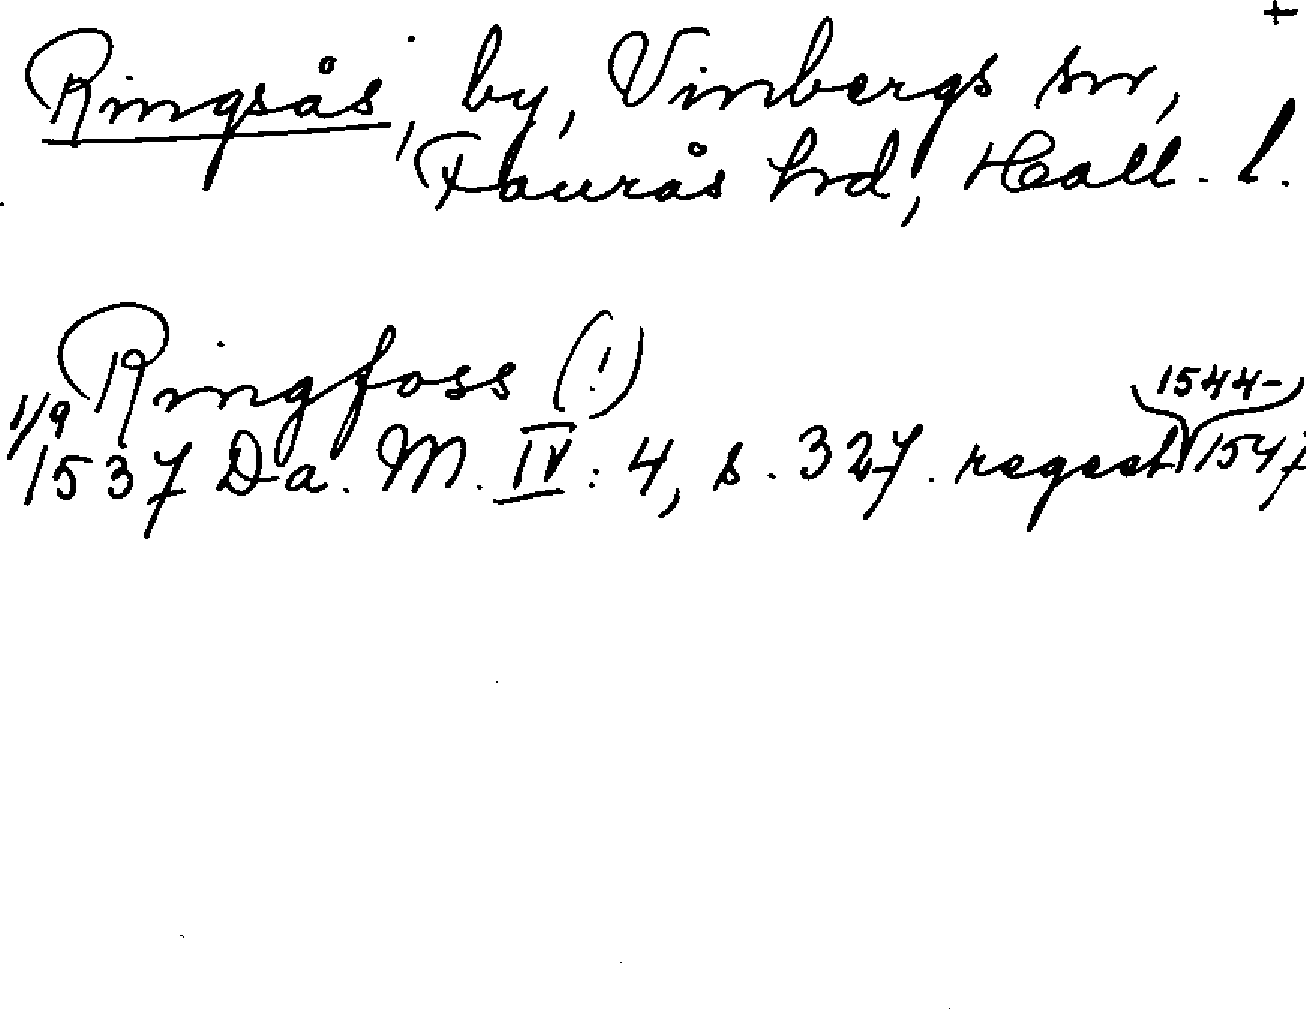 +
Ringsås, by, Vinbergs sn,
Faurås hrd, Hall. l.
Ringfoss (!)
1/9 1544-
1537 Da. M. IV: 4, s. 327. regest 1547